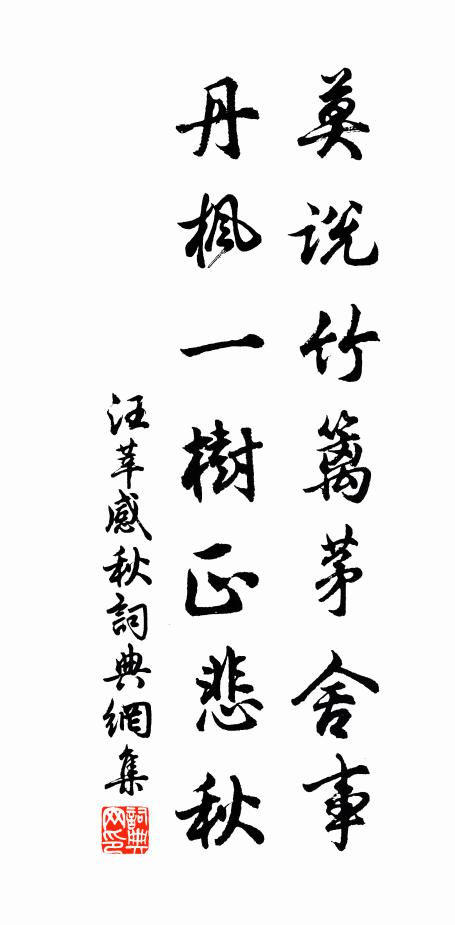 莫说竹篱茅舍事
丹枫一樹正悲秋
汪莘感秋詞典網集
詞典網印